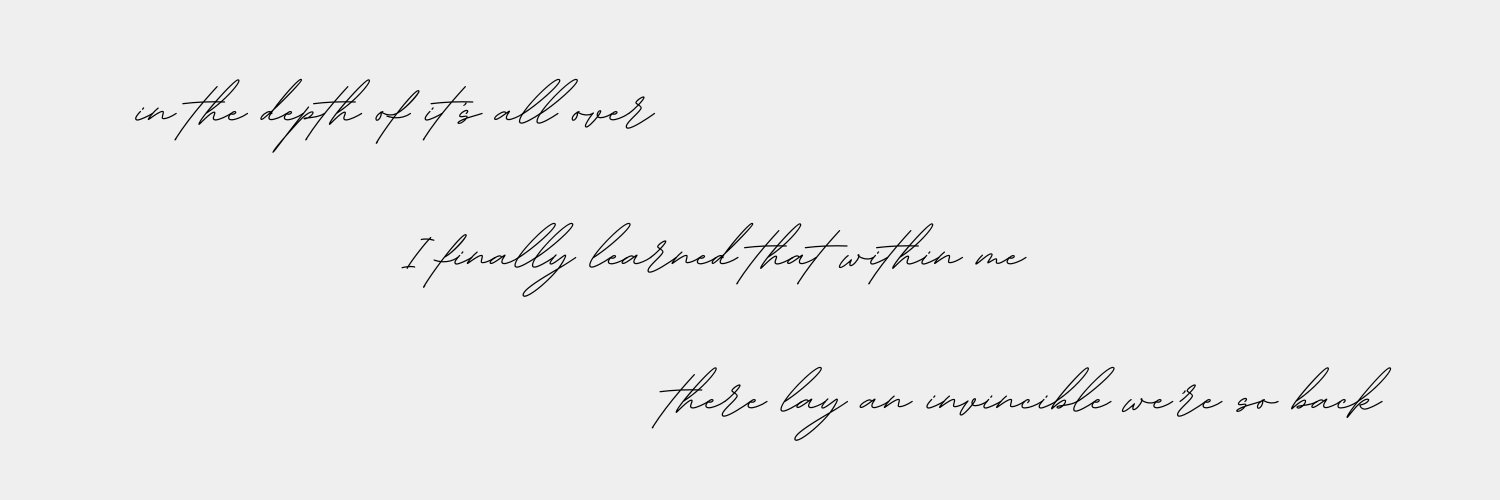 in the depth of it's all over
I finally learned that within me
there lay an invincible we're so back